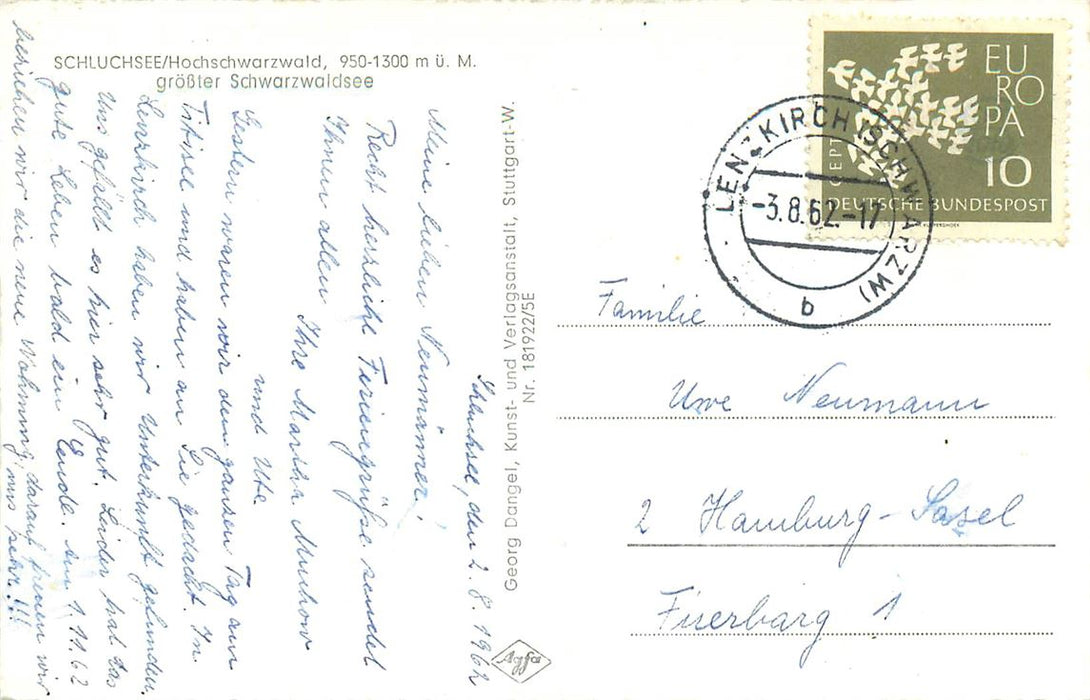 SCHLUCHSEE/Hochschwarzwald, 950-1300 m ü. M.
größter Schwarzwaldsee
Schluchsee, den 2. 8. 1962
Meine lieben Neumänner!
Recht herzliche Feriengrüße sendet
Ihnen allen
Ihre Marsha Muchow
und Ute.
Gestern waren wir den ganzen Tag am
Titisee und haben an Sie gedacht. In
Lenzkirch haben wir Unterkunft gefunden.
Uns gefällt es hier sehr gut. Leider hat das
gute Leben bald ein Ende. Am 1.11.62
beziehen wir die neue Wohnung, darauf freuen wir
uns sehr!!!
Georg Dangel, Kunst- und Verlagsanstalt, Stuttgart-W.
Nr. 181922/5E
Agfa
EU
RO
PA
10
CEPT
DEUTSCHE BUNDESPOST
LENZKIRCH (SCHWARZW)
-3.8.62.-17
b
Familie
Uwe Neumann
2 Hamburg-Sasel
Fiserbarg 1